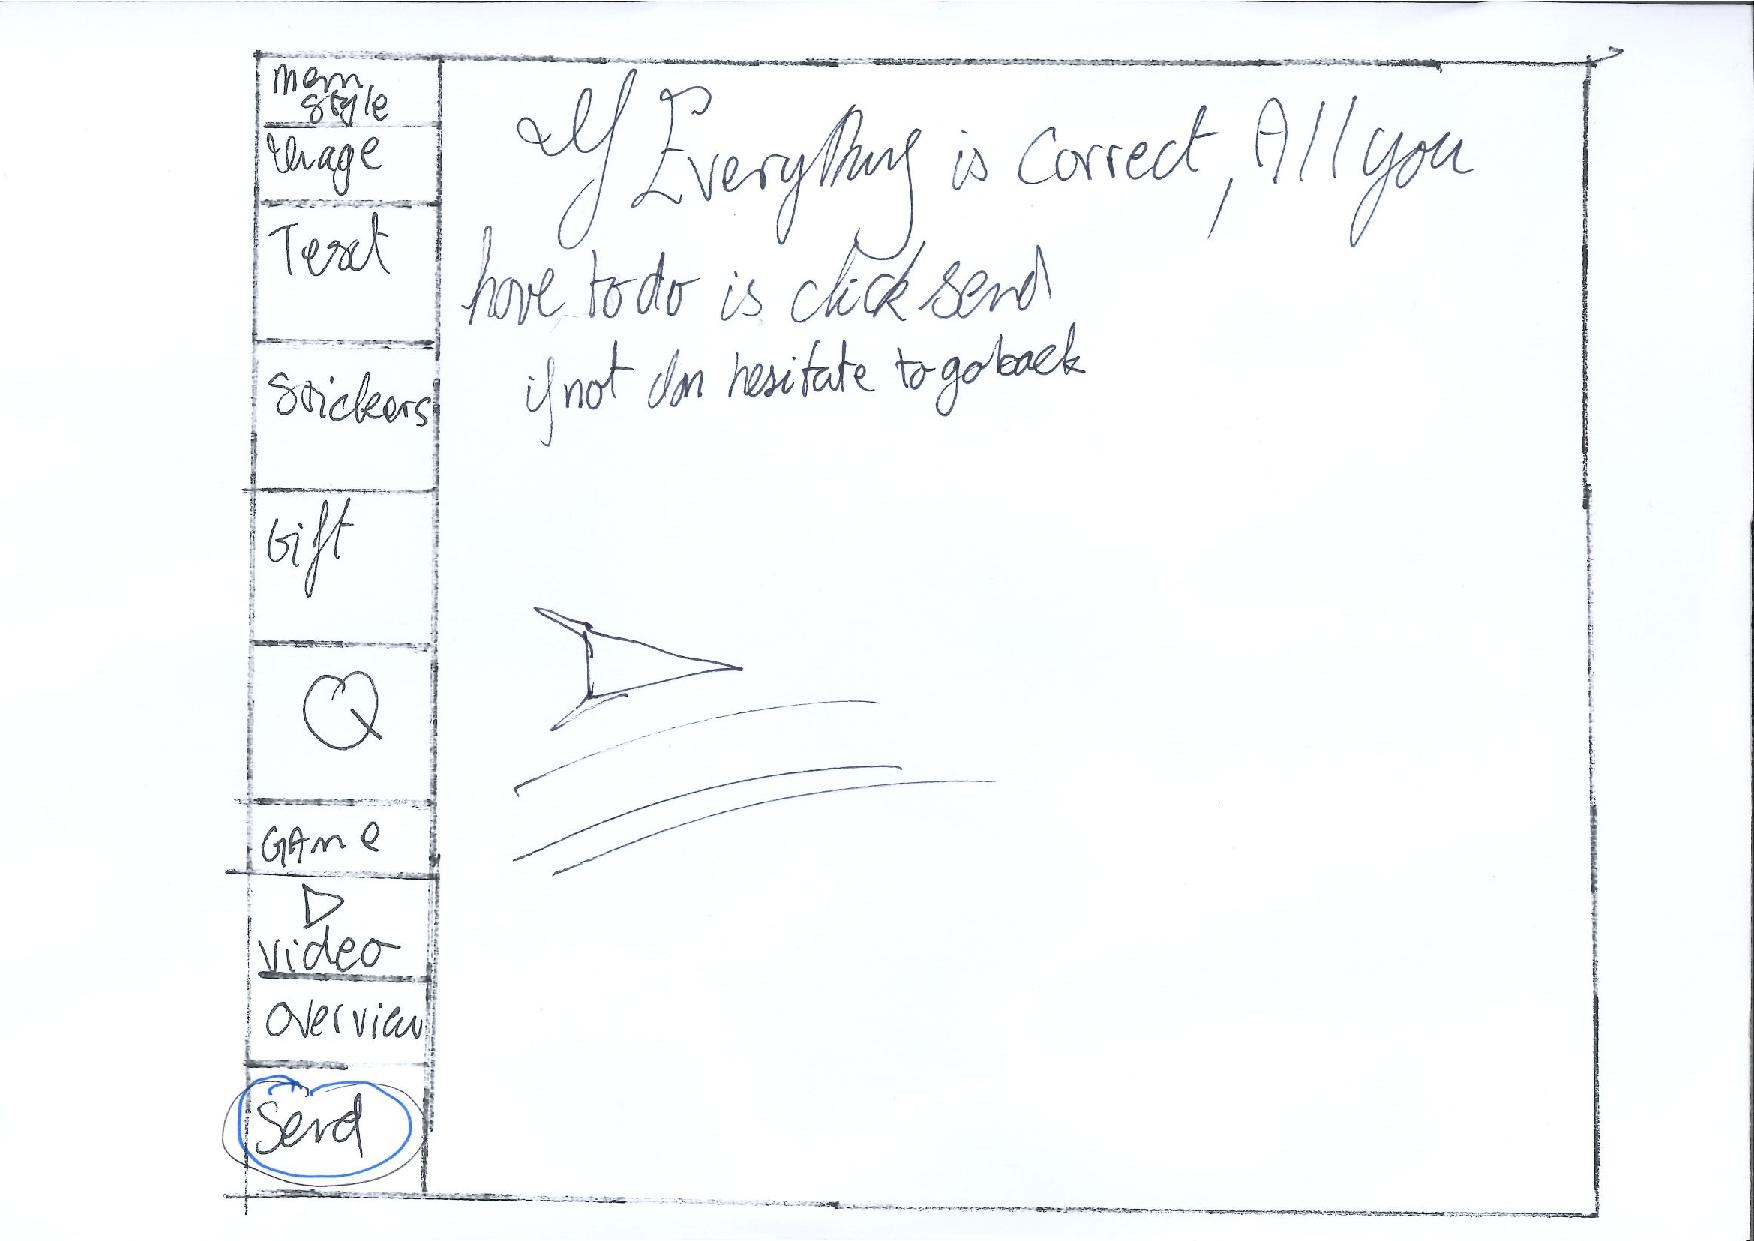 mem
style
image
Text
Stickers
Gift
GAme
video
overview
Send
If Everything is correct, All you
have to do is click send
if not don hesitate to go back